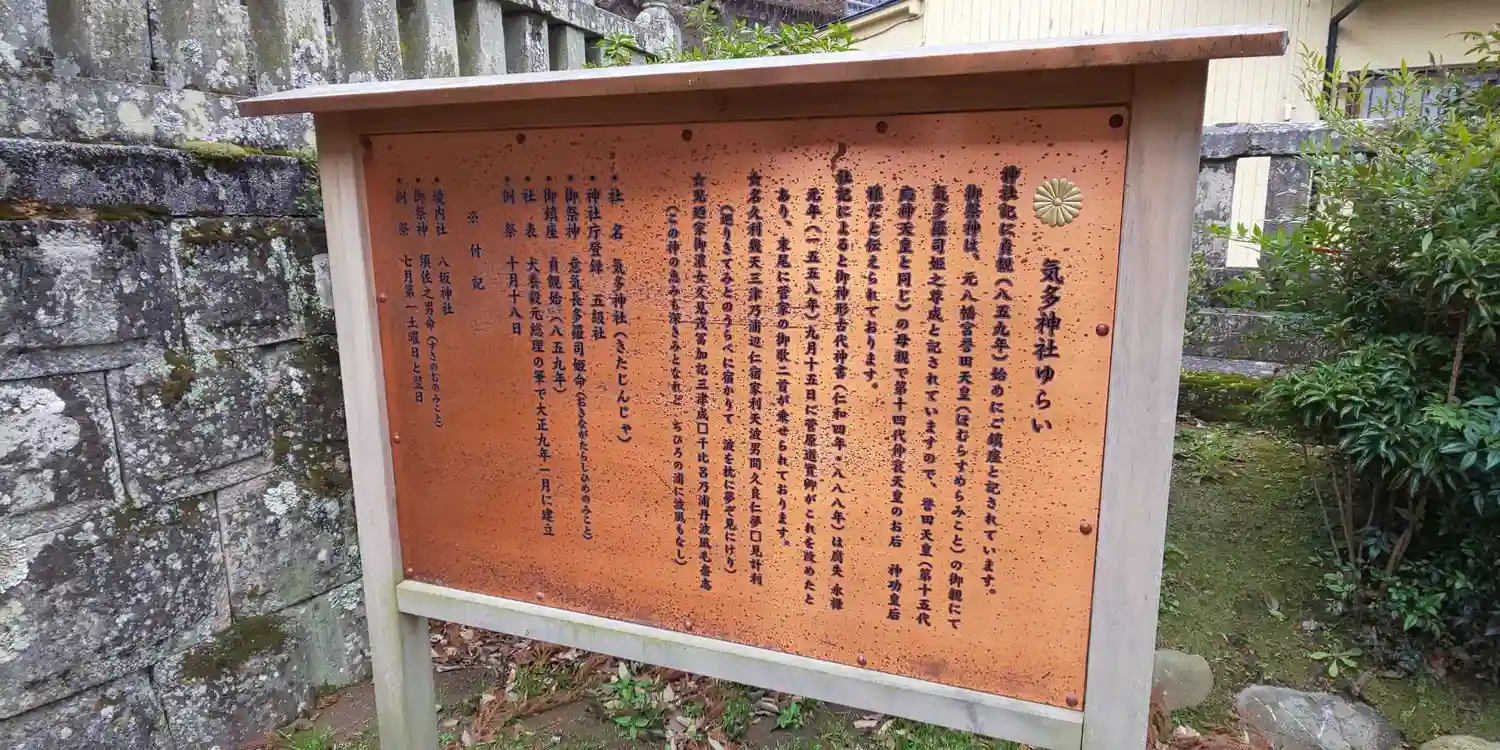 気多神社ゆらい
神社記に貞観(八五九年)始めにご鎮座と記されています。
御祭神は、元八幡宮誉田天皇(ほむらすめらみこと)の御親にて
気多羅司姫之尊成と記されていますので、誉田天皇(第十五代
応神天皇と同じ)の母親で第十四代仲哀天皇のお后 神功皇后
様だと伝えられております。
社記によると御神形古代神書(仁和四年・八八八年)は腐失 永禄
元年(一五五八年)九月十五日に菅原道實御がこれを改めたと
あり、末尾に菅家の御歌二首が乗せられております。
☆名久利幾天三津乃浦辺仁宿家利天波男間久良仁夢□見計利
(廻りきてみとのうらべに宿かりて 波を枕に夢ぞ見にけり)
☆児廼家御濃女久見茂富加記三津成□千比呂乃浦丹波風毛奈志
(この神の恵みも深きみとなれど ちひろの浦に波風もなし)
・社 名 気多神社(きたじんじゃ)
・神社庁登録 五級社
・御祭神 意気長多羅司姫命(おきながたらしひめのみこと)
・御鎮座 貞観始(八五九年)
・社 表 犬養毅元総理の筆で大正九年一月に建立
・例 祭 十月十八日
※ 付 記
・境内社 八坂神社
・御祭神 須佐之男命(すさのをのみこと)
・例 祭 七月第一土曜日と翌日